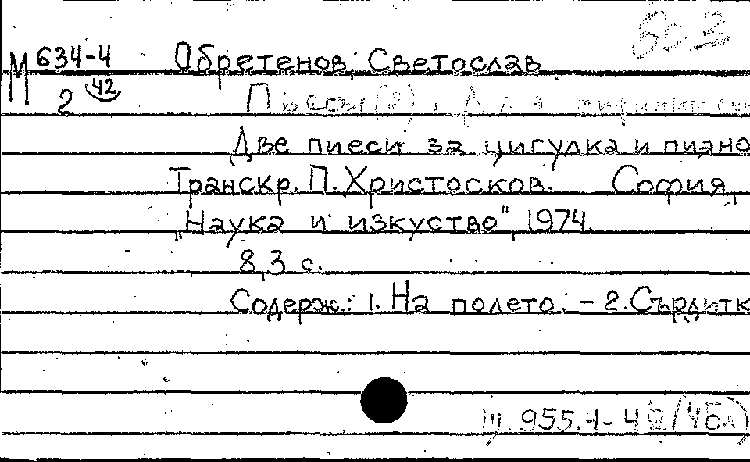 М 634-4
2 42
Обретенов, Светослав
Пьесы (2). Для
Две пиеси за цигулка и пиано
Транскр. П. Христосков. София,
"Наука и изкуство", 1974.
8,3 с.
Содерж.: 1. На полето. - 2. Сърдитк
955.-1-4